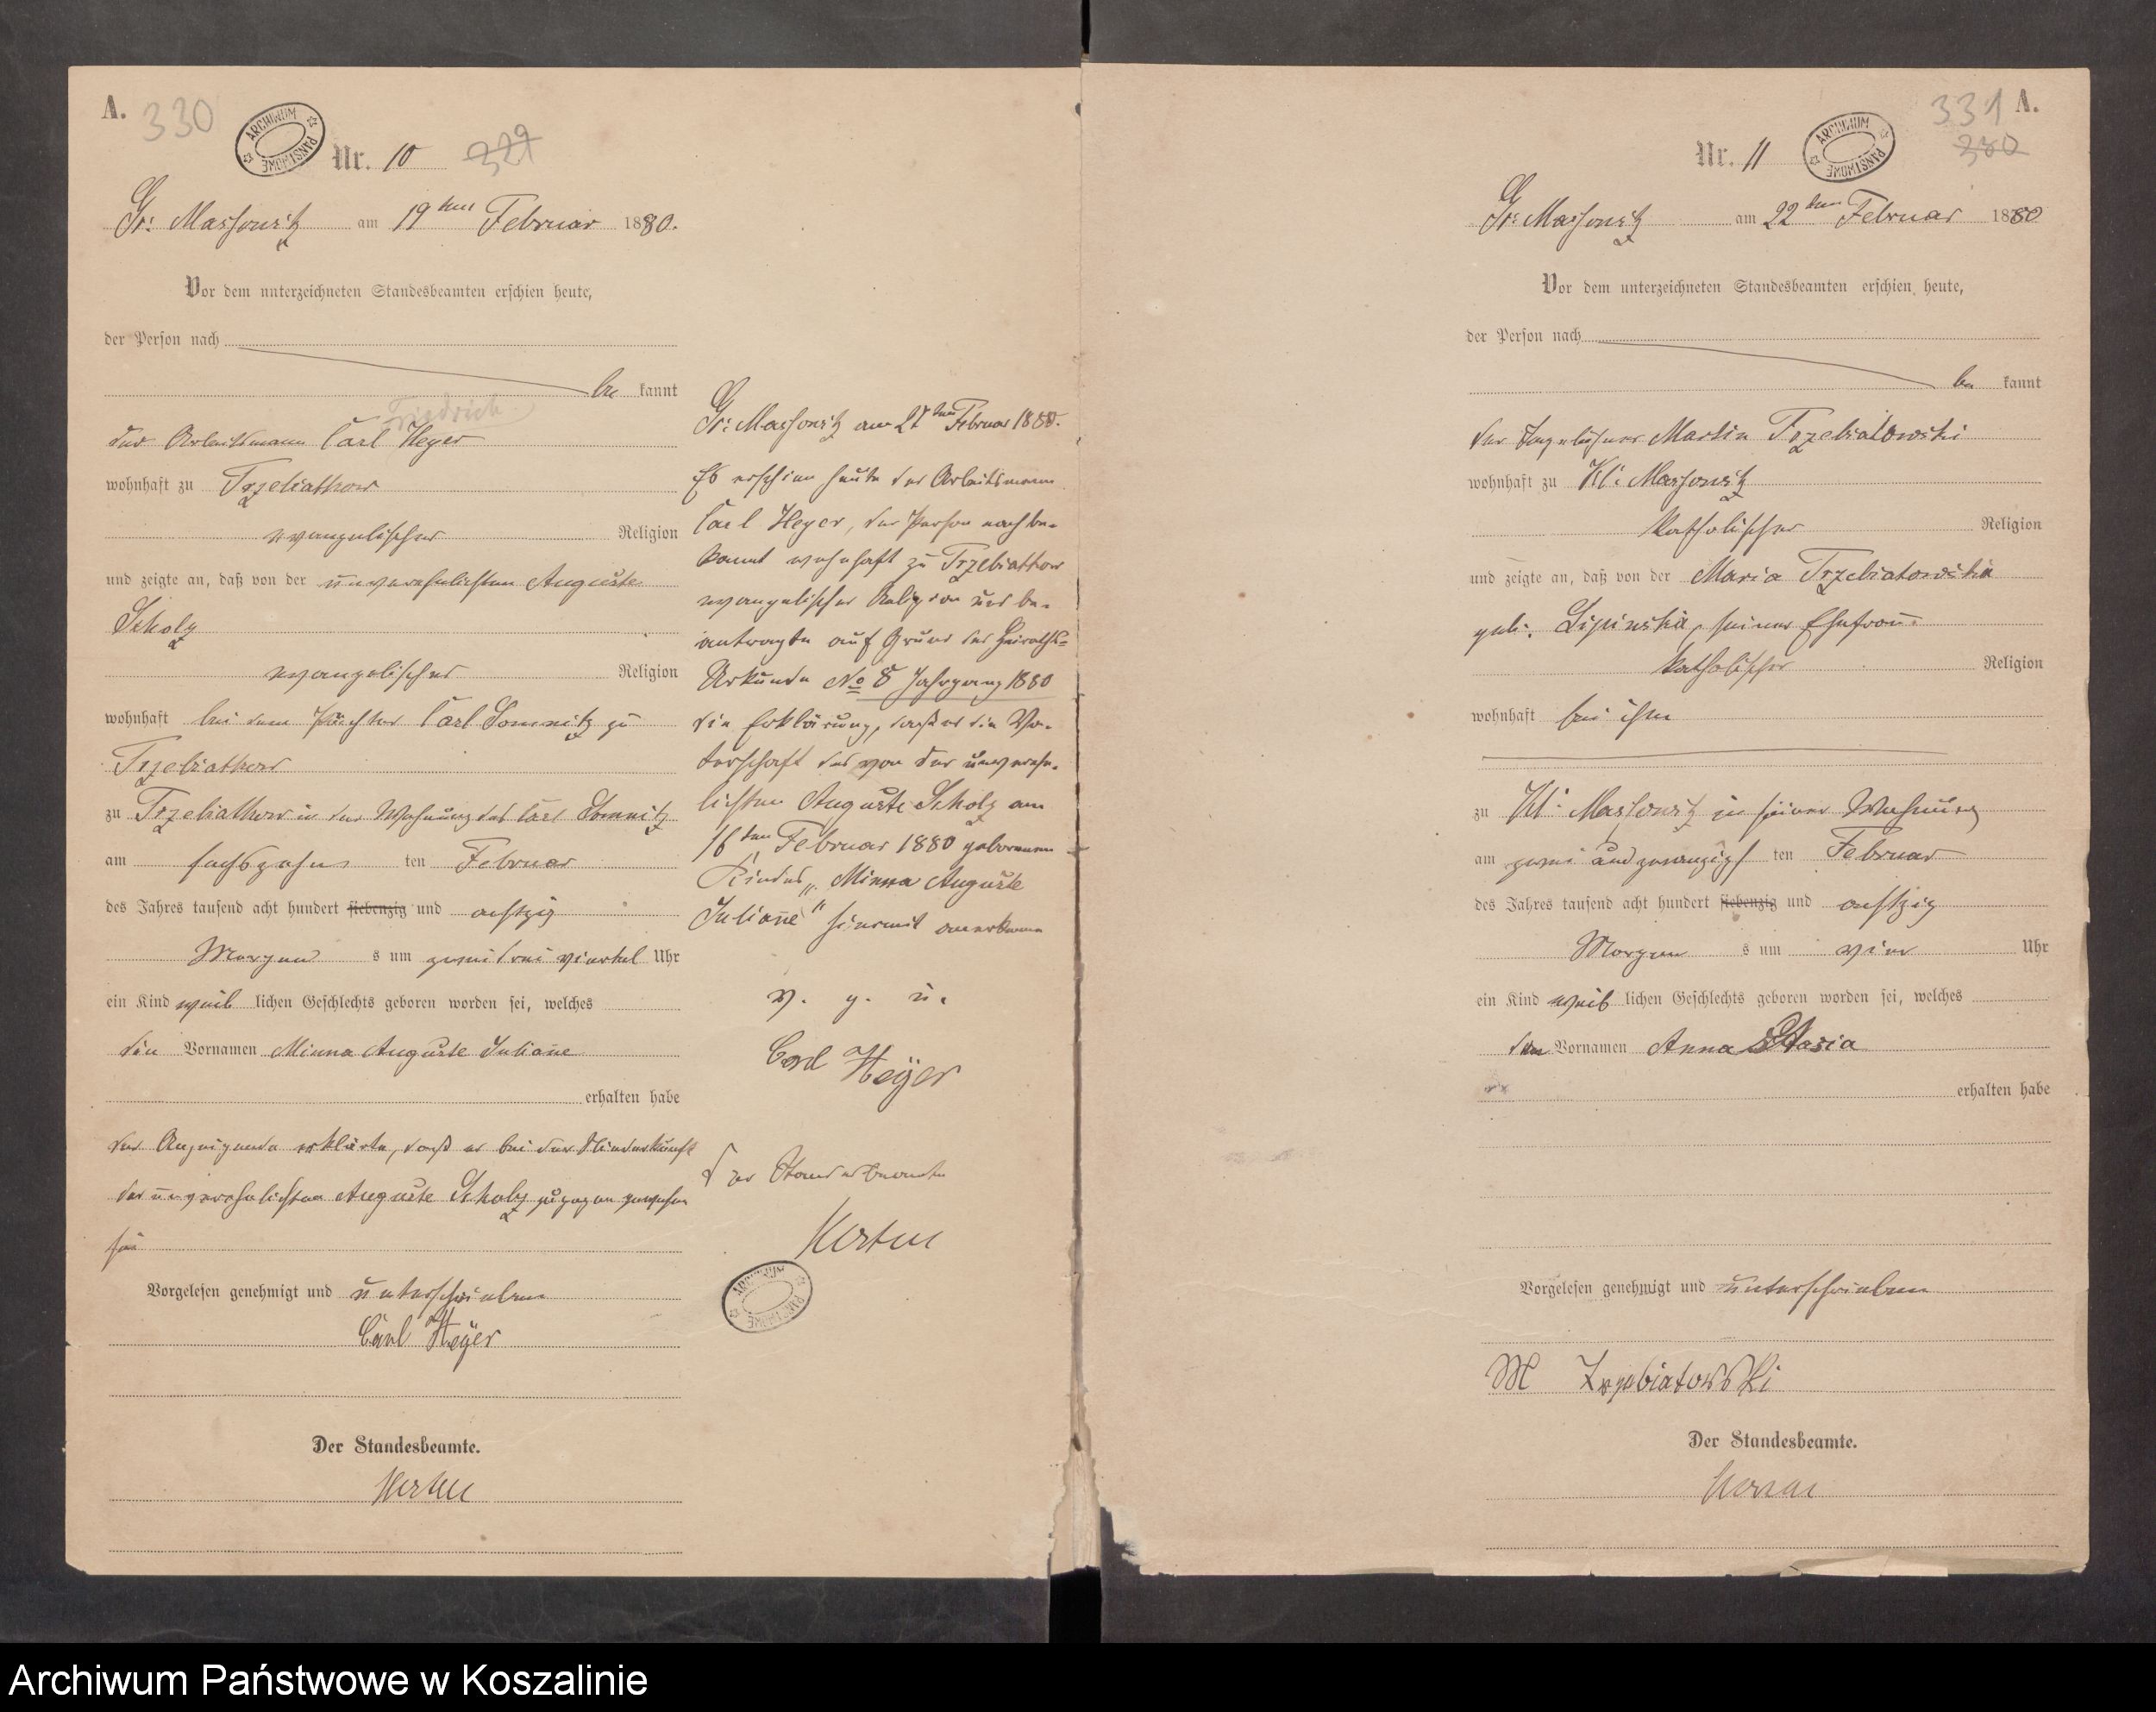 A. 330
ARCHIWUM PAŃSTWOWE
Nr. 10 329
Gr: Massowitz am 19ten Februar 1880.
Vor dem unterzeichneten Standesbeamten erschien heute,
der Person nach
be kannt
Friedrich
der Arbeitsmann Carl Heyer
wohnhaft zu Trzebiatkow
evangelischer Religion
und zeigte an, daß von der unverehelichten Auguste
Scholz
evangelischer Religion
wohnhaft bei dem Pächter Carl Somnitz zu
Trzebiatkow
zu Trzebiatkow in der Wohnung des Carl Somnitz
am sechszehn ten Februar
des Jahres tausend acht hundert siebenzig und achtzig
Morgen s um zwei drei viertel Uhr
ein Kind weib lichen Geschlechts geboren worden sei, welches
die Vornamen Minna Auguste Juliane
erhalten habe
der Anzeigende erklärte, daß er bei der Niederkunft
der unverehelichten Auguste Scholz zugegen gewesen
sei
Vorgelesen genehmigt und unterschrieben
Carl Heÿer
Der Standesbeamte.
Gr: Massowitz am 27ten Februar 1880.
Es erschien heute der Arbeitsmann
Carl Heyer, der Person nach be-
kannt wohnhaft zu Trzebiatkow
evangelischer Religion und be-
antragte auf Grund der Heiraths-
Urkunde No 8 Jahrgang 1880
die Erklärung, daß er die Va-
terschaft des von der unverehe-
lichten Auguste Scholz am
16ten Februar 1880 geborenen
Kindes „Minna Auguste
Juliane" hiermit anerkenne
v. g. u.
Carl Heÿer
Der Standesbeamte
ARCHIWUM PAŃSTWOWE
331 A.
Nr. 11 330
ARCHIWUM PAŃSTWOWE
Gr: Massowitz am 22ten Februar 1880
Vor dem unterzeichneten Standesbeamten erschien heute,
der Person nach
be kannt
der Tagelöhner Martin Trzebiatowski
wohnhaft zu Kl: Massowitz
katholischer Religion
und zeigte an, daß von der Maria Trzebiatowska
geb. Lipinska, seiner Ehefrau
katholischer Religion
wohnhaft bei ihm
zu Kl: Massowitz in seiner Wohnung
am zwei und zwanzigst ten Februar
des Jahres tausend acht hundert siebenzig und achtzig
Morgen s um vier Uhr
ein Kind weib lichen Geschlechts geboren worden sei, welches
den Vornamen Anna
erhalten habe
Vorgelesen genehmigt und unterschrieben
M Trzebiatowski
Der Standesbeamte.
Archiwum Państwowe w Koszalinie